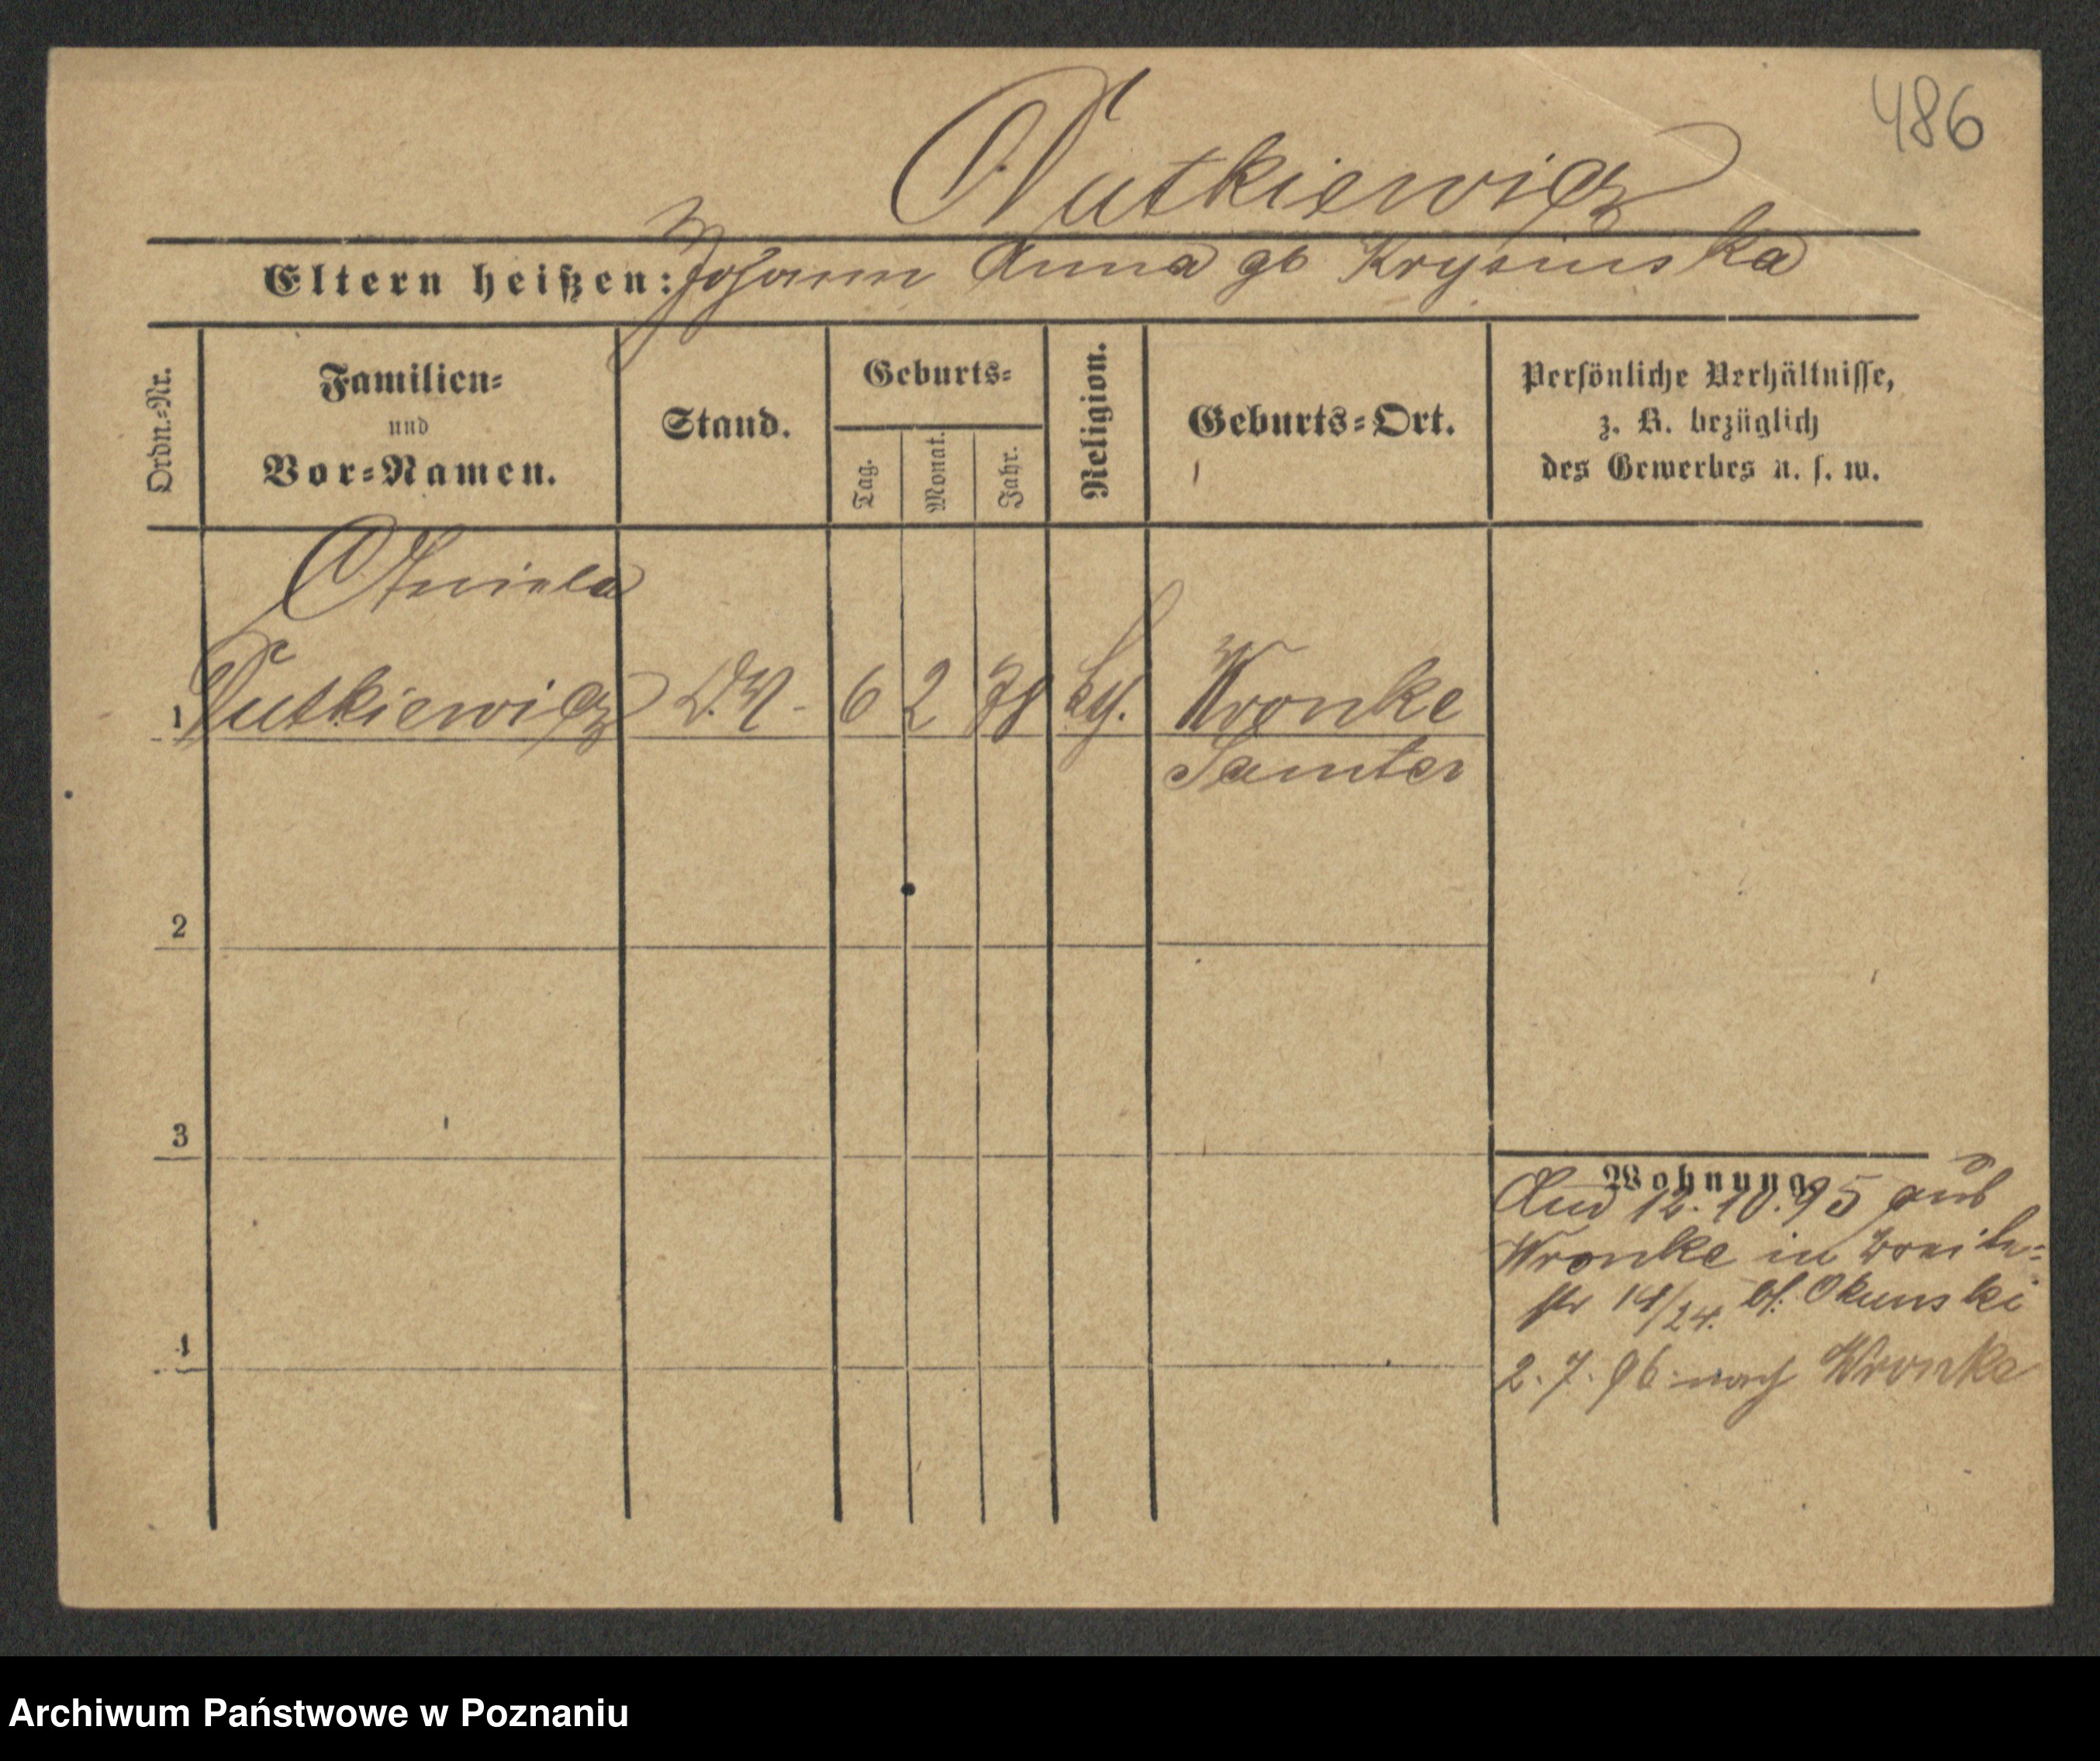 486
Nutkiewicz
Eltern heißen: Johann Anna gb Krysinska
Ordn.-Nr.
Familien-
und
Vor-Namen.
Stand.
Geburts-
Tag.
Monat.
Jahr.
Religion.
Geburts-Ort.
Persönliche Verhältnisse,
z. B. bezüglich
des Gewerbes u. s. w.
Aniela
1 Nutkiewicz 6 2 78 Wronke
Samter
2
3
4
Wohnung
12.10.95 aus
Wronke in Breite-
str 14/24. bf. Okunski
2.7.96 nach Wronke
Archiwum Państwowe w Poznaniu